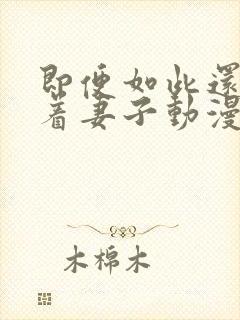 即便如此還
着妻子動漫
木棉木